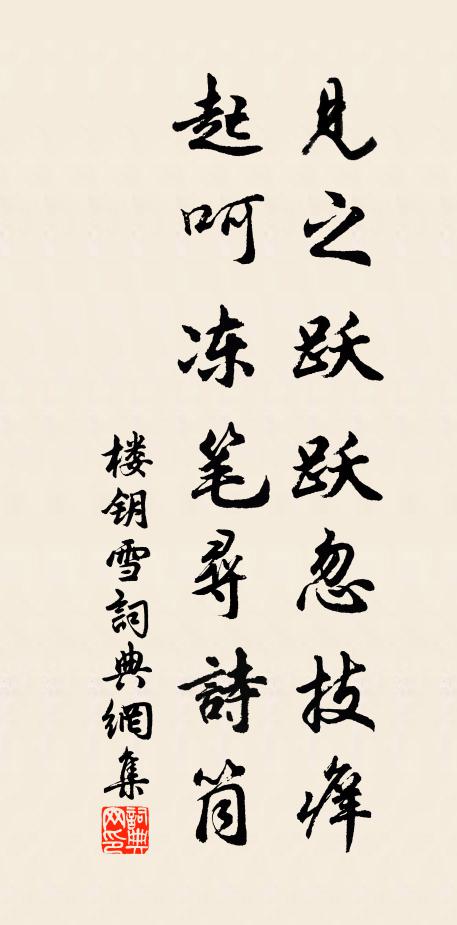 见之跃跃忽技痒
起呵冻笔寻詩筒
楼钥雪詞典網集
詞典网印